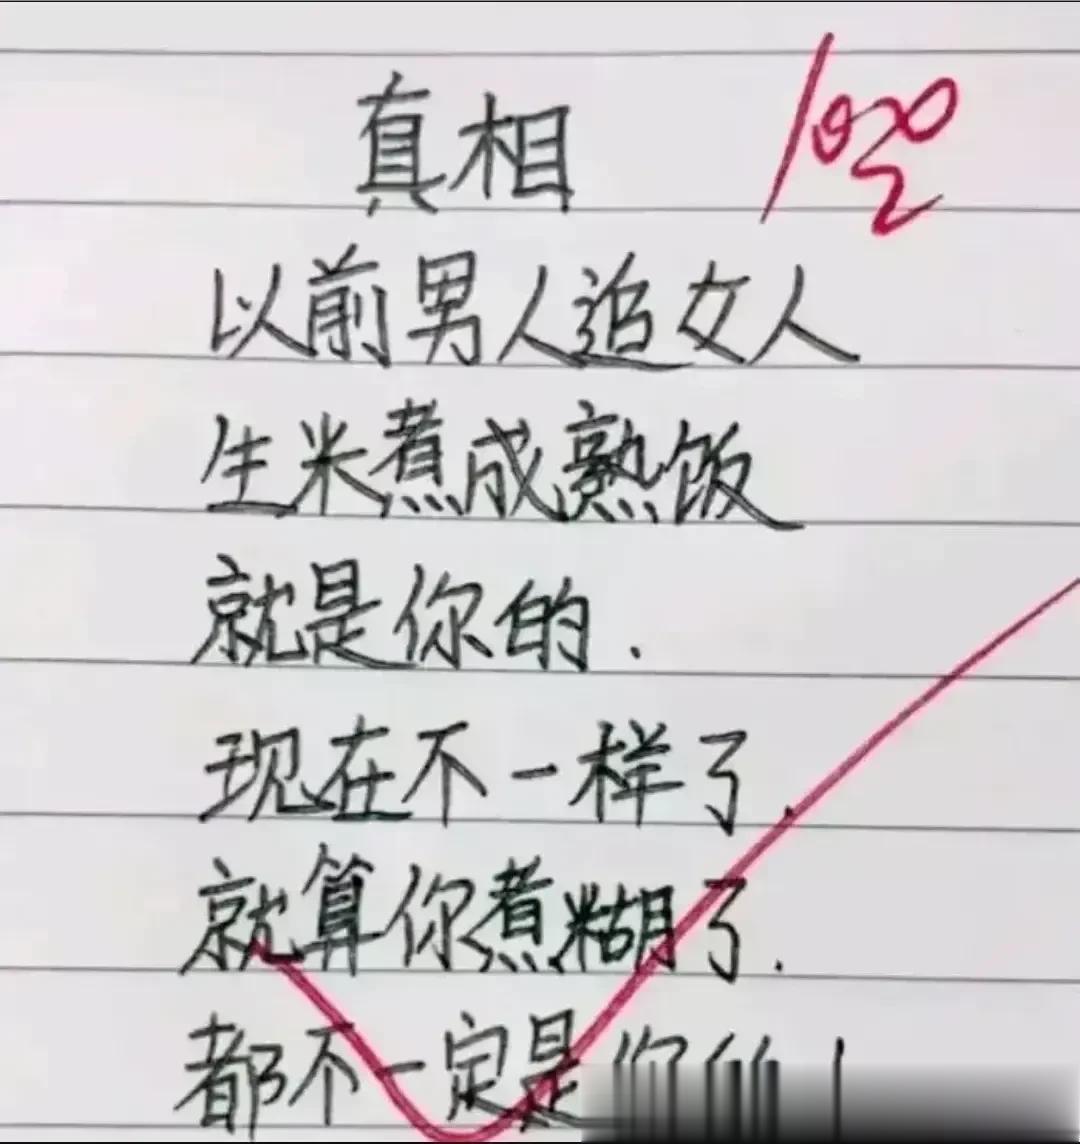 真相
100
以前男人追女人
生米煮成熟饭
就是你的.
现在不一样了.
就算你煮糊了.
都不一定是你的!